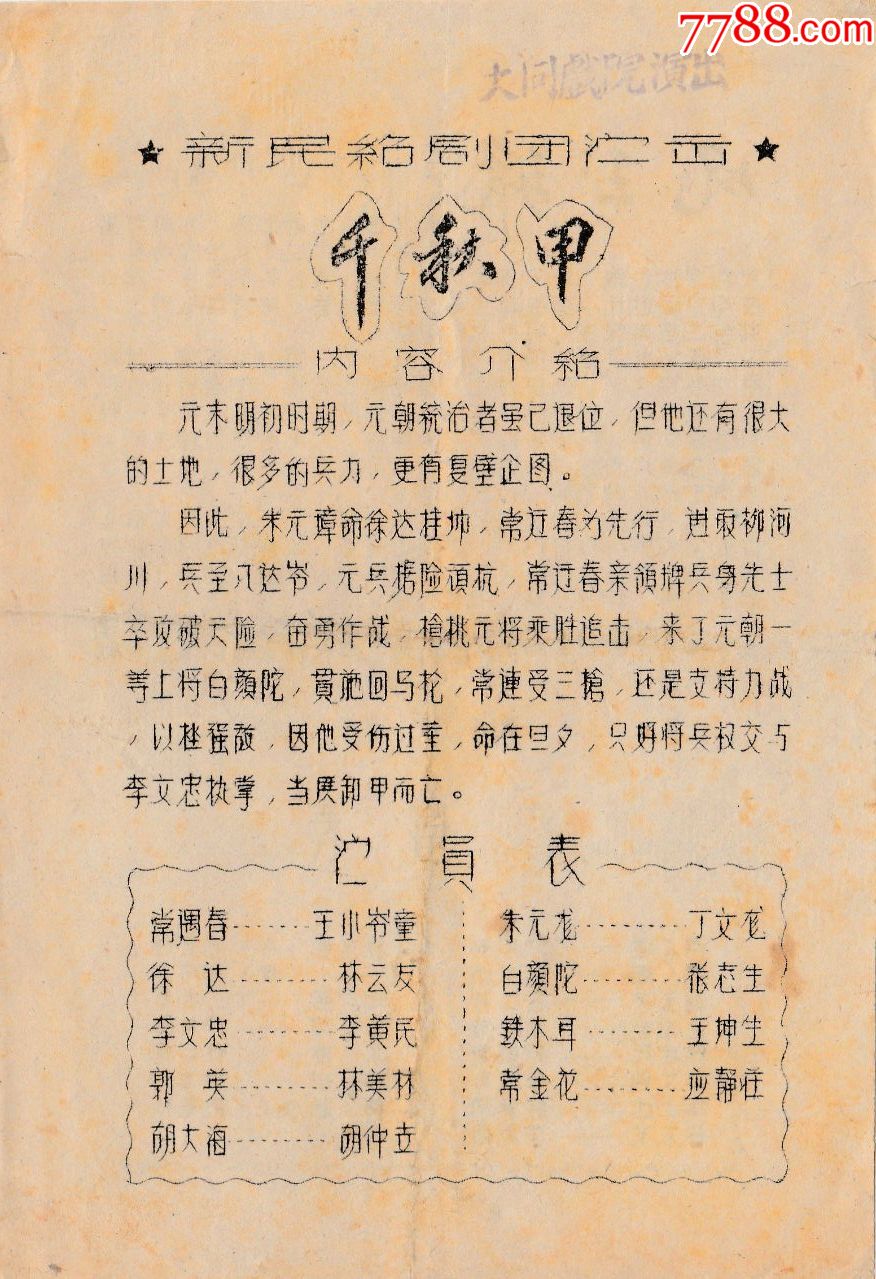 7788.com
大同戲院演出
★新民绍剧团演出★
千秋甲
内容介绍
元末明初时期，元朝統治者虽已退位，但他还有很大
的土地，很多的兵力，更有复壁企图。
因此，朱元璋命徐达桂帅，常迂春为先行，进取柳河
川，兵至八达岺，元兵据险頑抗，常迂春亲領牌兵身先士
卒攻破天险，奋勇作战，槍桃元将乘胜追击，来了元朝一
等上将白顏陀，貫施回马枪，常連受三槍，还是支持力战
，以挫强敌，因他受伤过重，命在旦夕，只好将兵权交与
李文忠执掌，当塲卸甲而亡。
演員表
常遇春······王小岺童
徐达·······林云友
李文忠·······李黄民
郭英·······林美林
胡大海·······胡仲立
朱元龙········丁文龙
白顏陀·······张志生
鉄木耳·······王坤生
常金花·······应静